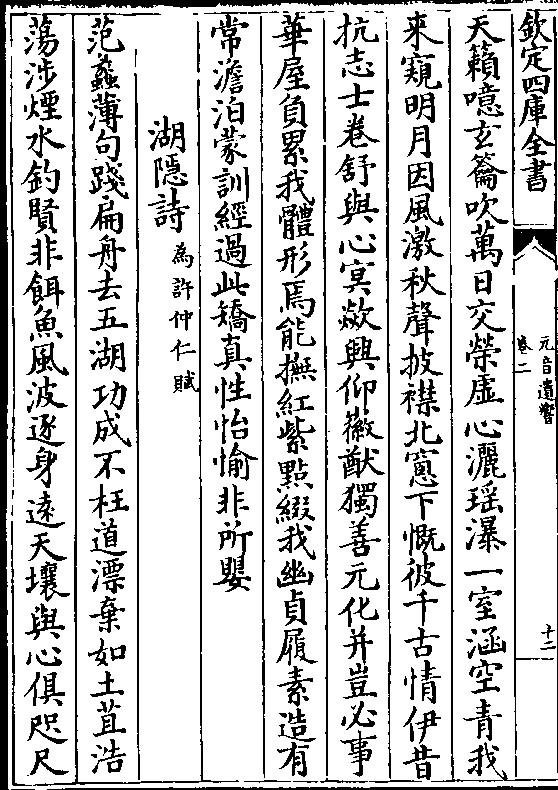 欽定四庫全書
元音遺響
卷二
十二
天籟噫玄籥吹萬日交榮虛心灑瑶瀑一室涵空青我
來窺明月因風激秋聲披襟北窻下慨彼千古情伊昔
抗志士卷舒與心㝠歘興仰徽猷獨善元化并豈必事
華屋負累我體形焉能撫紅紫點綴我幽貞履素造有
常澹泊蒙訓經過此矯真性怡愉非所嬰
湖隱詩
為許仲仁賦
范蠡薄句踐扁舟去五湖功成不枉道漂棄如土苴浩
蕩涉煙水釣賢非餌魚風波逐身遠天壤與心俱咫尺